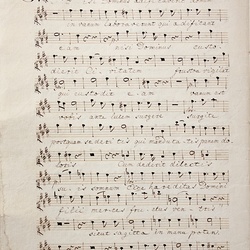 in vanum laboraverunt qui ædificant
eam nisi Dominus custo
dierit Civitatem frustra vigilat
qui custodit eam vanum est
vobis ante lucem surgere surgite
postquam sederitis qui manducatis panem do
cum dederit dilect
suis somnum Ecce hæreditas Domini
filii merces fructus ventris
sicut sagittæ in manu poten